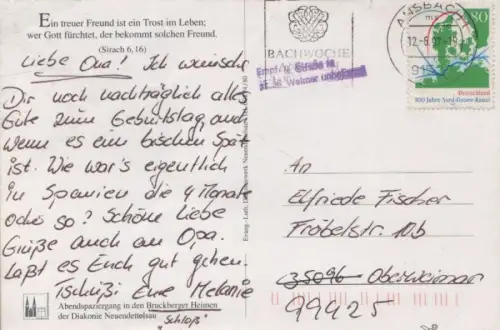 Ein treuer Freund ist ein Trost im Leben;
wer Gott fürchtet, der bekommt solchen Freund.
(Sirach 6,16)
Liebe Oma! Ich wünsche
Dir noch nachträglich alles
Gute zum Geburtstag, auch
wenn es ein bischen Spät
ist. Wie war's eigentlich
in Spanien die 4 Monate
oder so? Schöne Liebe
Grüße auch an Opa.
Laßt es Euch gut gehen.
Tschüßi Eure Melanie
"Schloß"
Abendspaziergang in den Bruckberger Heimen
der Diakonie Neuendettelsau
BACHWOCHE
ANSBACH
80
Deutschland
An
Elfriede Fischer
Fröbelstr. 10b
35096 Oberweimar
99425